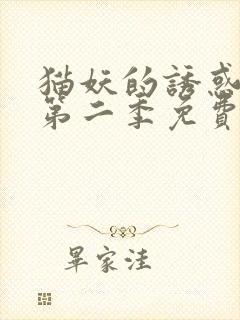 猫妖的誘惑
第二季免費
畢家洼